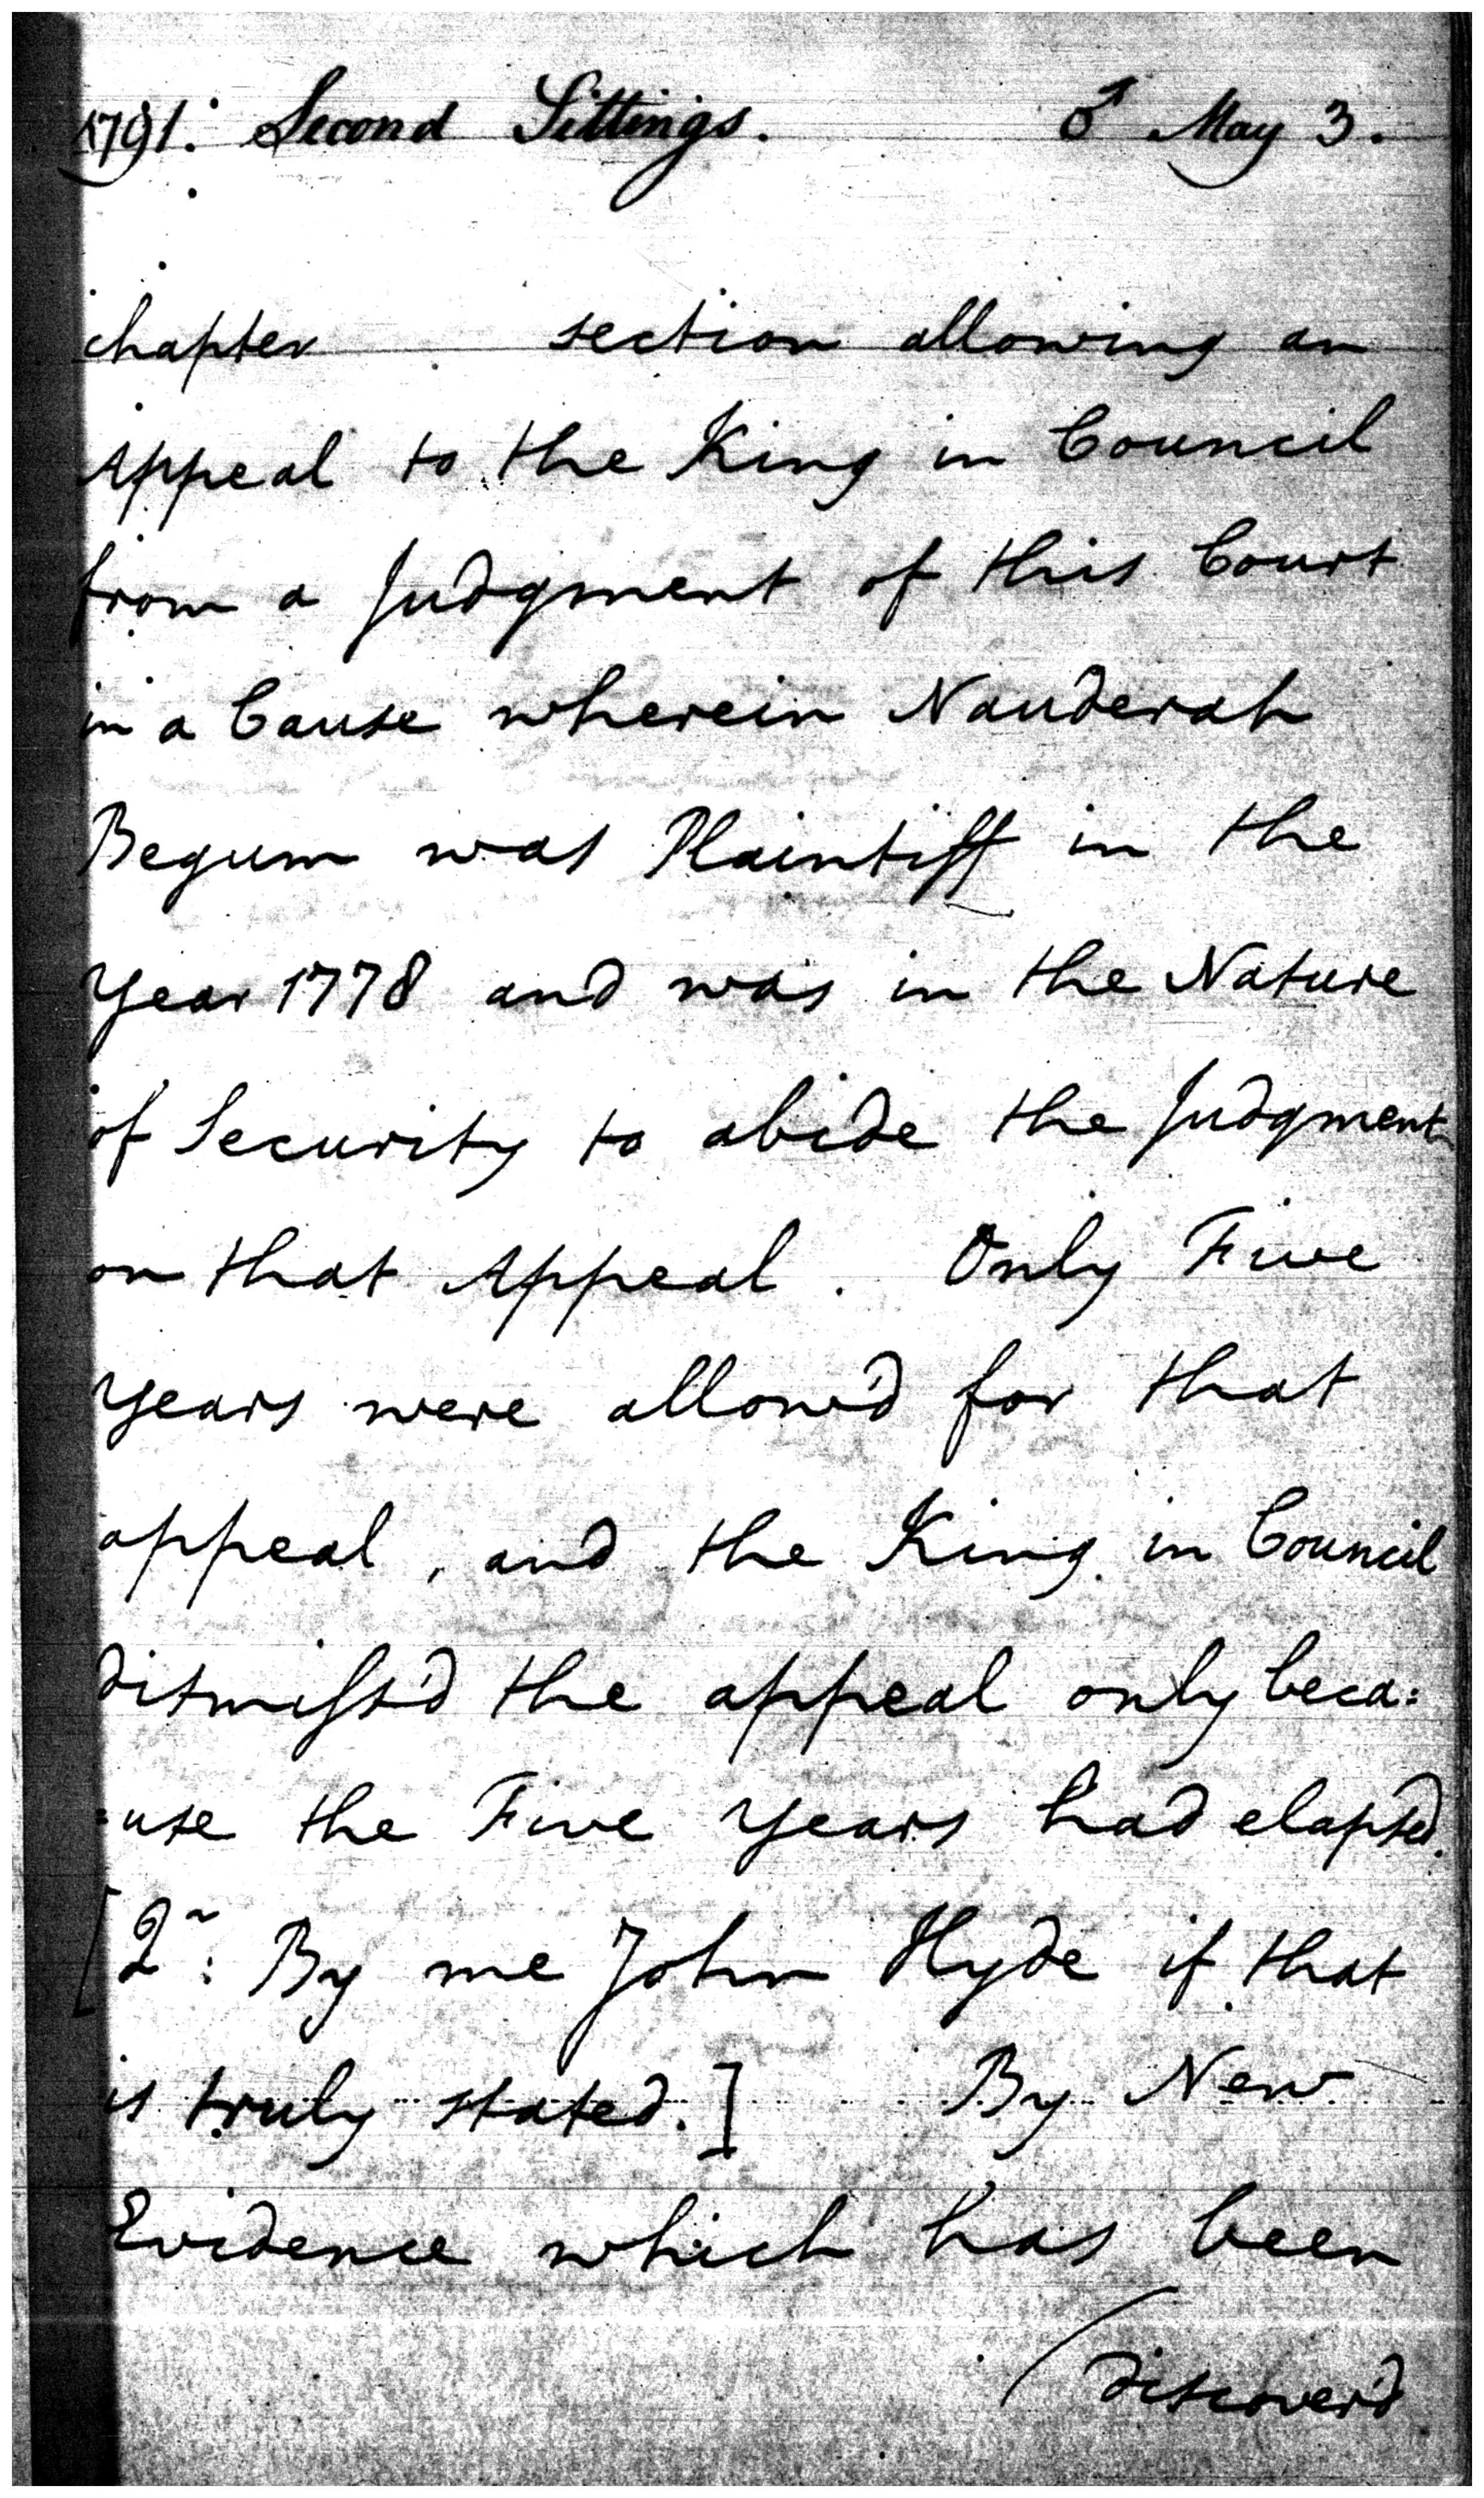 1791. Second Sittings. ♂ May 3.
chapter section allowing an
Appeal to the King in Council
from a Judgment of this Court
in a Cause wherein Nauderah
Begum was Plaintiff in the
Year 1778 and was in the Nature
of Security to abide the Judgment
on that Appeal. Only Five
years were allow'd for that
appeal, and the King in Council
dismiss'd the appeal only beca:
:use the Five years had elapsed.
[2~: By me John Hyde if that
is truly stated.] By New
Evidence which has been
discover'd